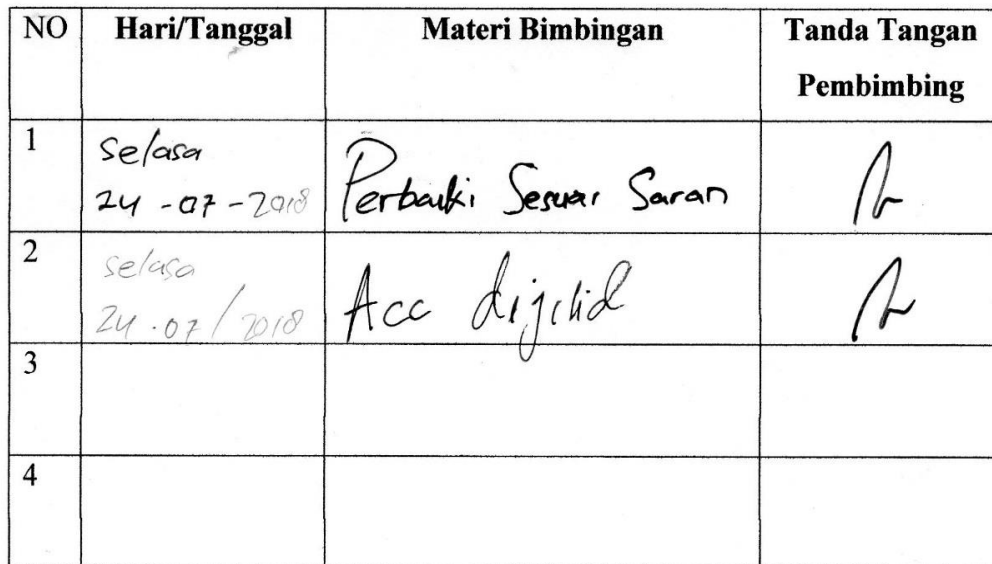 NO Hari/Tanggal Materi Bimbingan Tanda Tangan
Pembimbing
1 Selasa
24 -07-2018 Perbaiki Sesuai Saran
2 selasa
24.07/2018 Acc dijilid
3
4